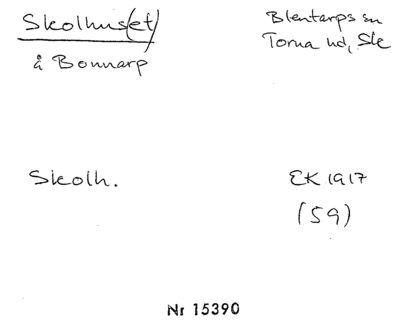 Skolhus(et)
Blentarps sn
å Bonnarp
Torna hd, Sk
Skolh.
EK 1917
(59)
Nr 15390